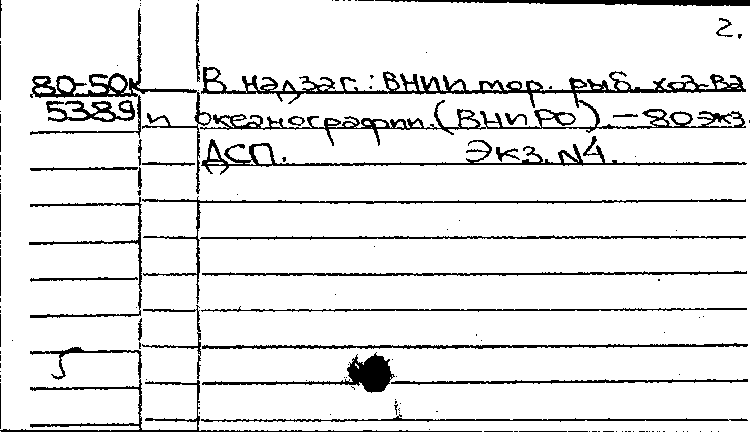 2.
80-50к В надзаг.: ВНИИ мор. рыб. хоз-ва
5389 и океанографии. (ВНИРО). – 80 экз.
ДСП. Экз. N4.